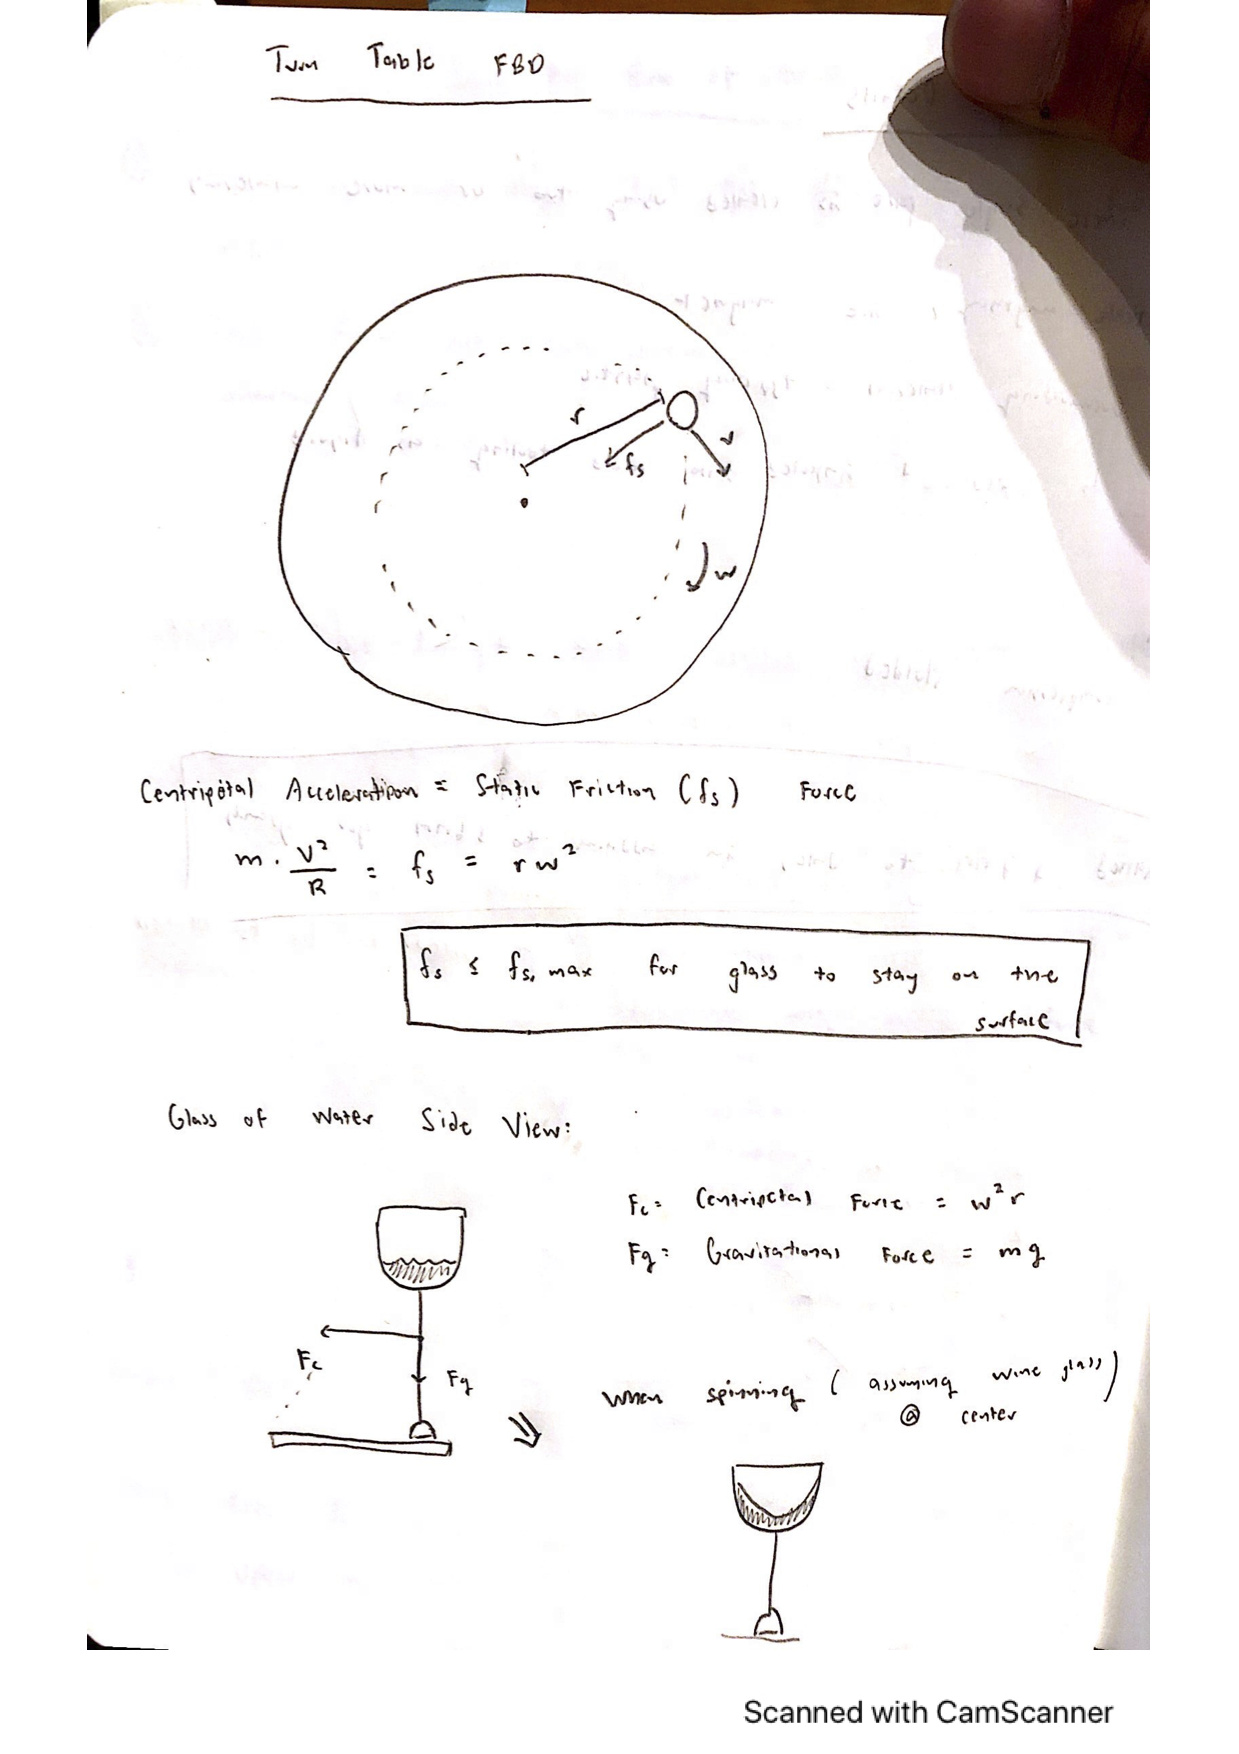 Turn Table FBD
r
fs
v
w
Centripetal Acceleration = Static Friction (fs) Force
m · V²/R = fs = rw²
fs ≤ fs, max for glass to stay on the
surface
Glass of Water Side View:
Fc = Centripetal Force = w²r
Fg = Gravitational Force = mg
Fc
Fg
When spinning (assuming wine glass)
@ center
Scanned with CamScanner